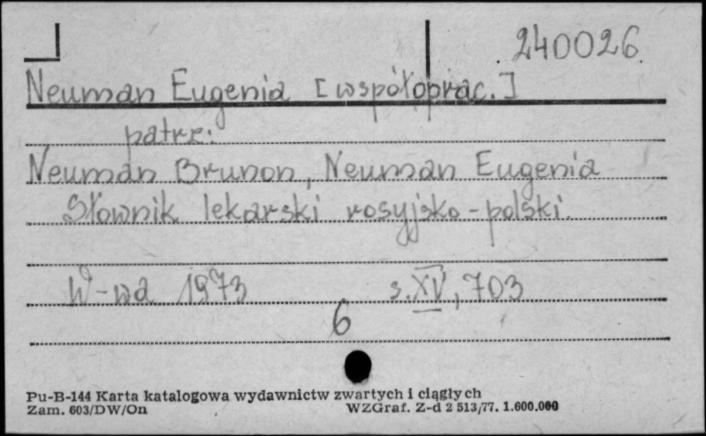 240026
Neuman Eugenia [współoprac.]
patrz:
Neuman Brunon, Neuman Eugenia
Słownik lekarski rosyjsko-polski.
W-wa 1973 s. XV, 703
6
Pu-B-144 Karta katalogowa wydawnictw zwartych i ciągłych
Zam. 603/DW/On WZGraf. Z-d 2 513/77. 1.600.000